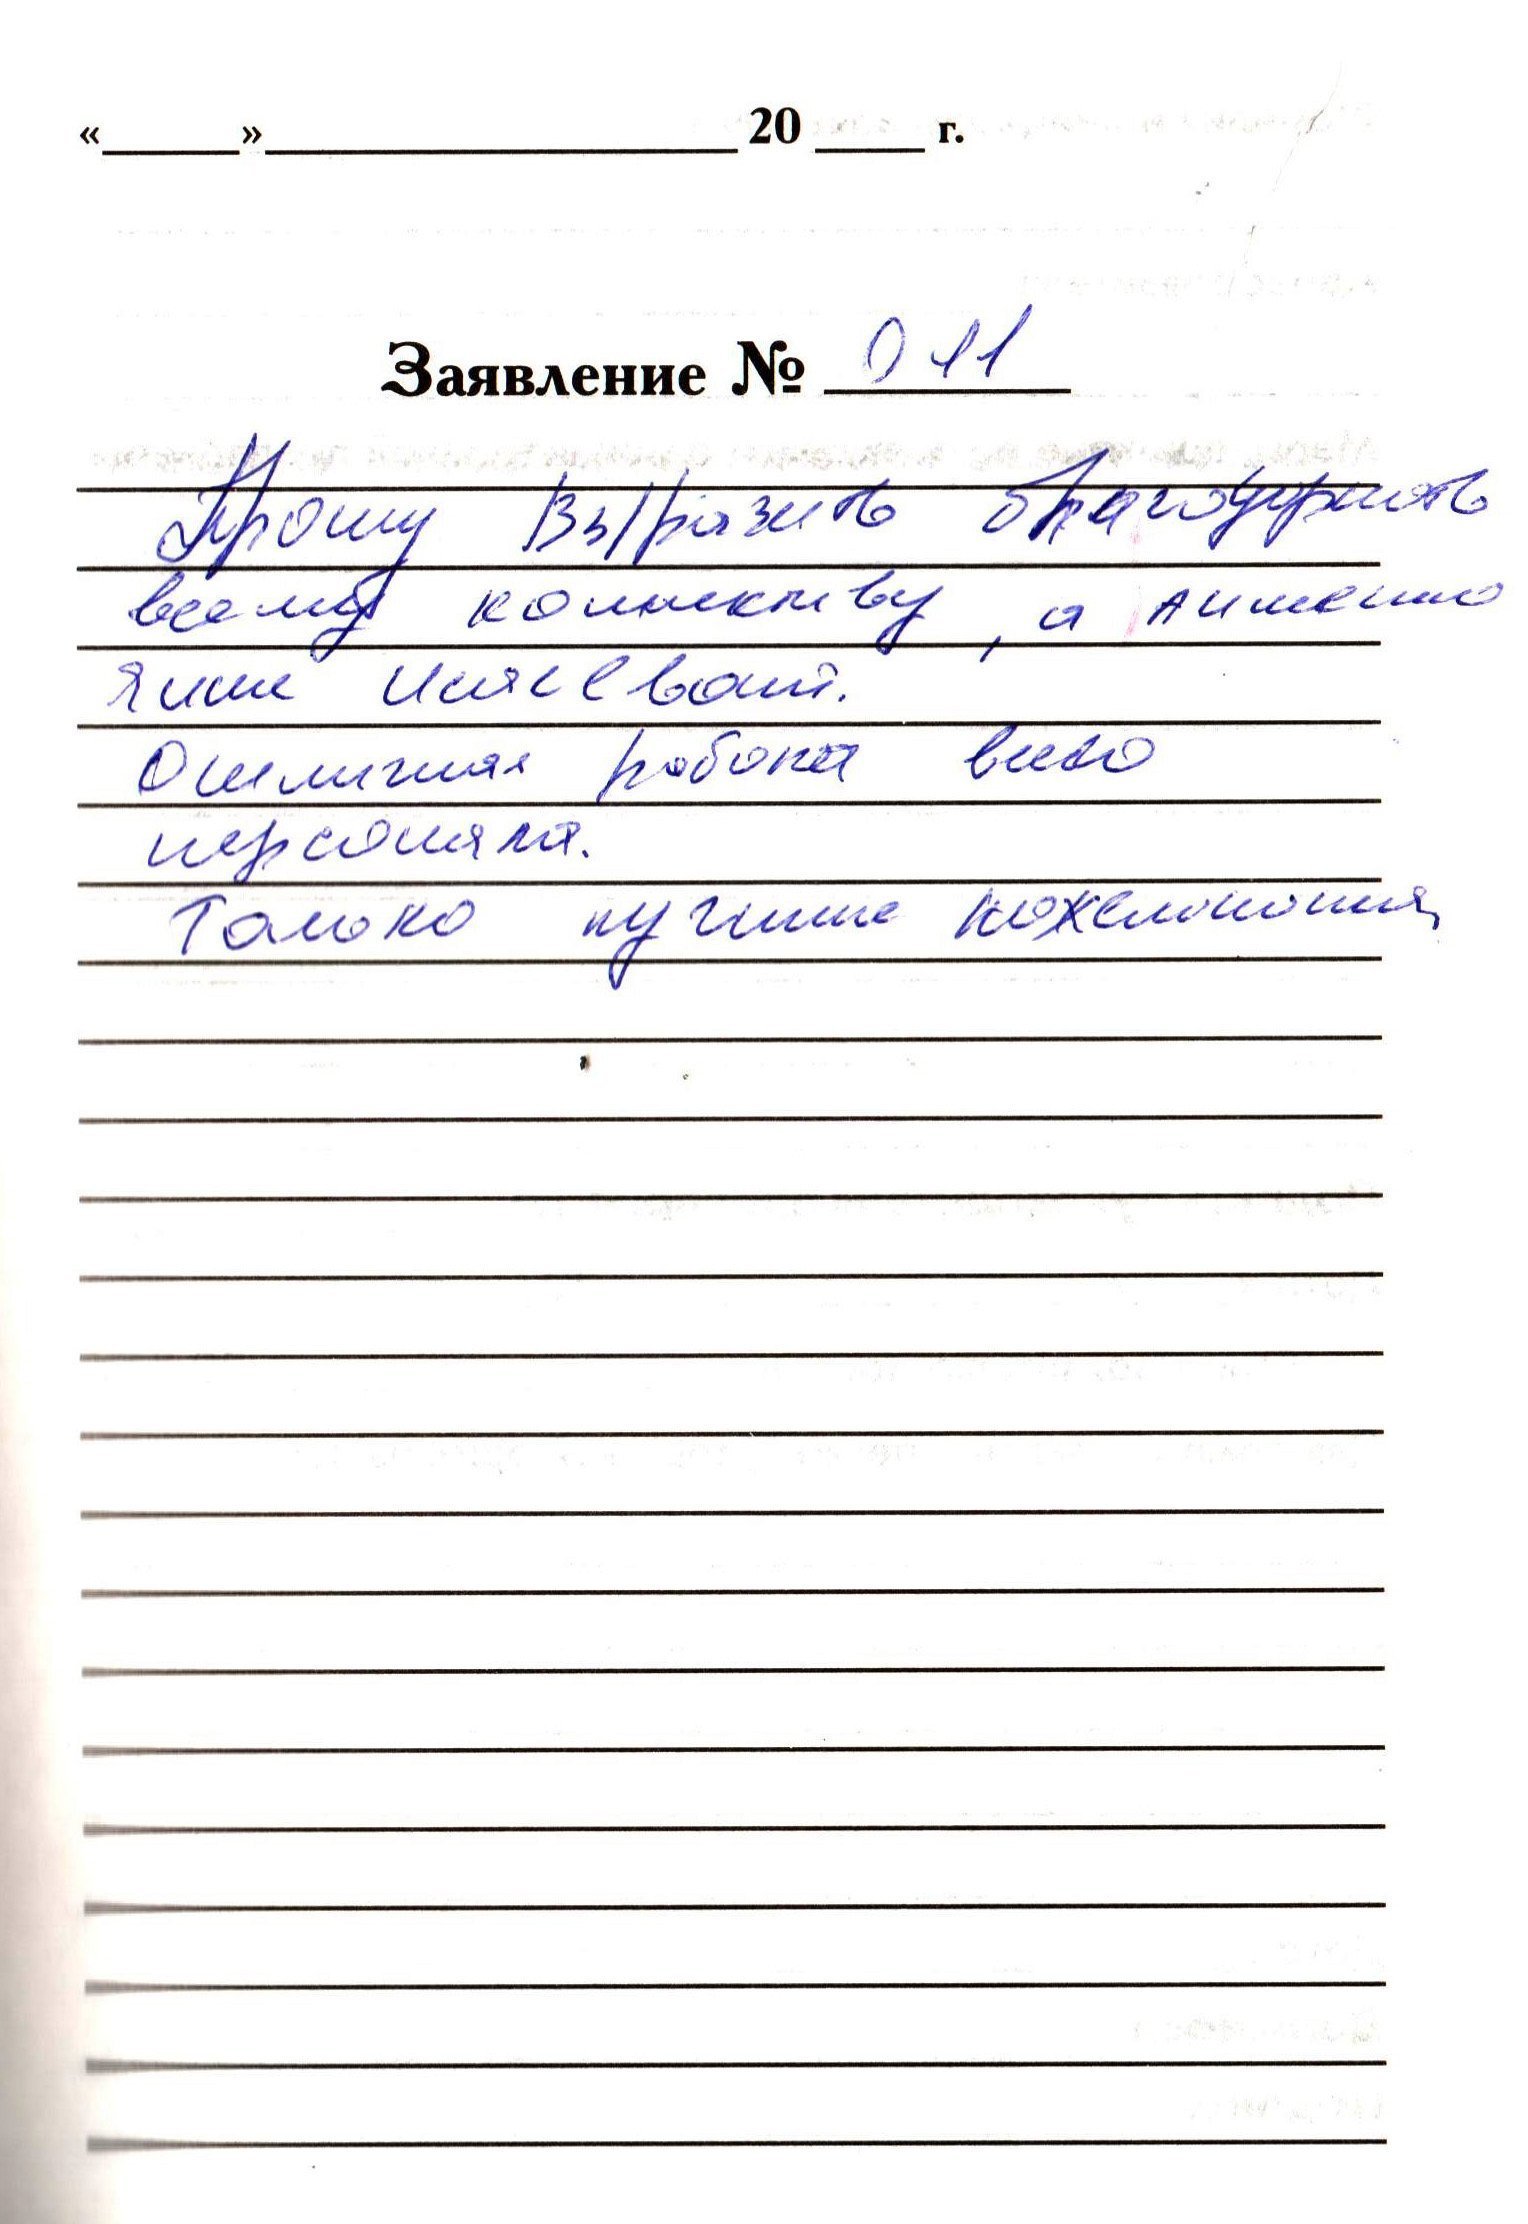 «______»____________________ 20 _____ г.
Заявление № 011
Прошу Выразить благодарность
всему коллективу, а именно
Яне
Отличная работа всего
персонала.
Только лучшие пожелания